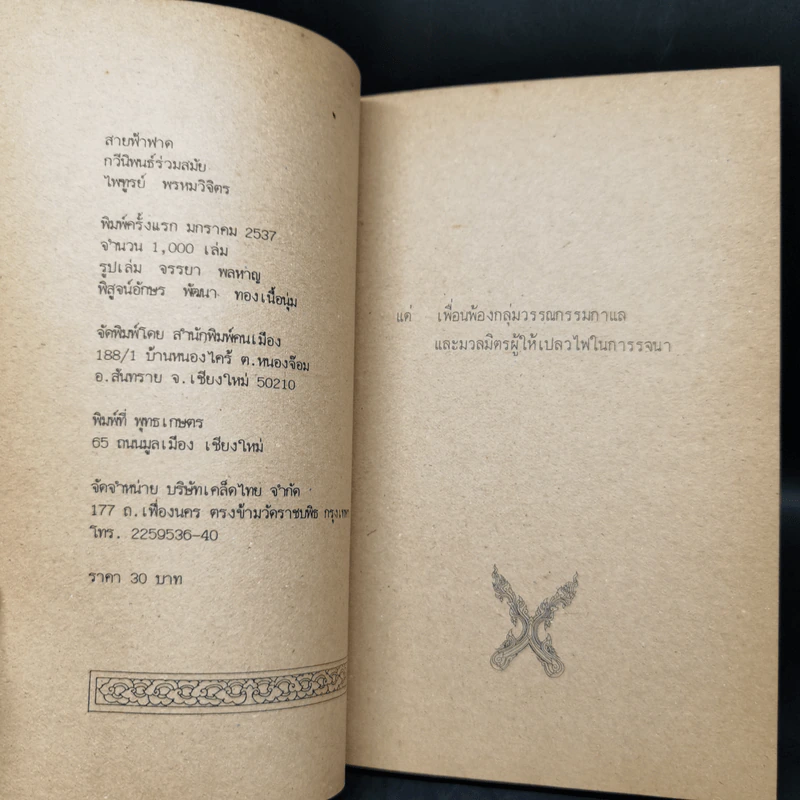 สายฟ้าฟาด
กวีนิพนธ์ร่วมสมัย
ไพฑูรย์ พรหมวิจิตร
พิมพ์ครั้งแรก มกราคม 2537
จำนวน 1,000 เล่ม
รูปเล่ม จรรยา พลหาญ
พิสูจน์อักษร พัฒนา ทองเนื้อนุ่ม
จัดพิมพ์โดย สำนักพิมพ์คนเมือง
188/1 บ้านหนองไคร้ ต.หนองจ๊อม
อ.สันทราย จ.เชียงใหม่ 50210
พิมพ์ที่ พุทธเกษตร
65 ถนนมูลเมือง เชียงใหม่
จัดจำหน่าย บริษัทเคล็ดไทย จำกัด
177 ถ.เฟื่องนคร ตรงข้ามวัดราชบพิธ
โทร. 2259536-40
ราคา 30 บาท
แด่ เพื่อนพ้องกลุ่มวรรณกรรมกาแล
และมวลมิตรผู้ให้เปลวไฟในการรจนา